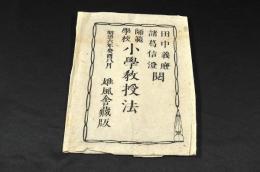 田中義廉
諸葛信澄 閲
師範學校 小學教授法
明治六年癸酉八月
雄風舎蔵版